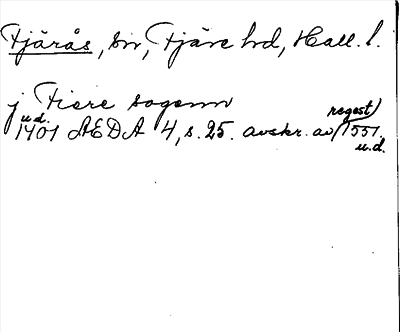 Fjärås, sn, Fjäre hd, Hall. l.
j Fiere sogenn
u.d. 1401 ÆDA 4, s. 25. avskr. av (regest) 1551. u.d.